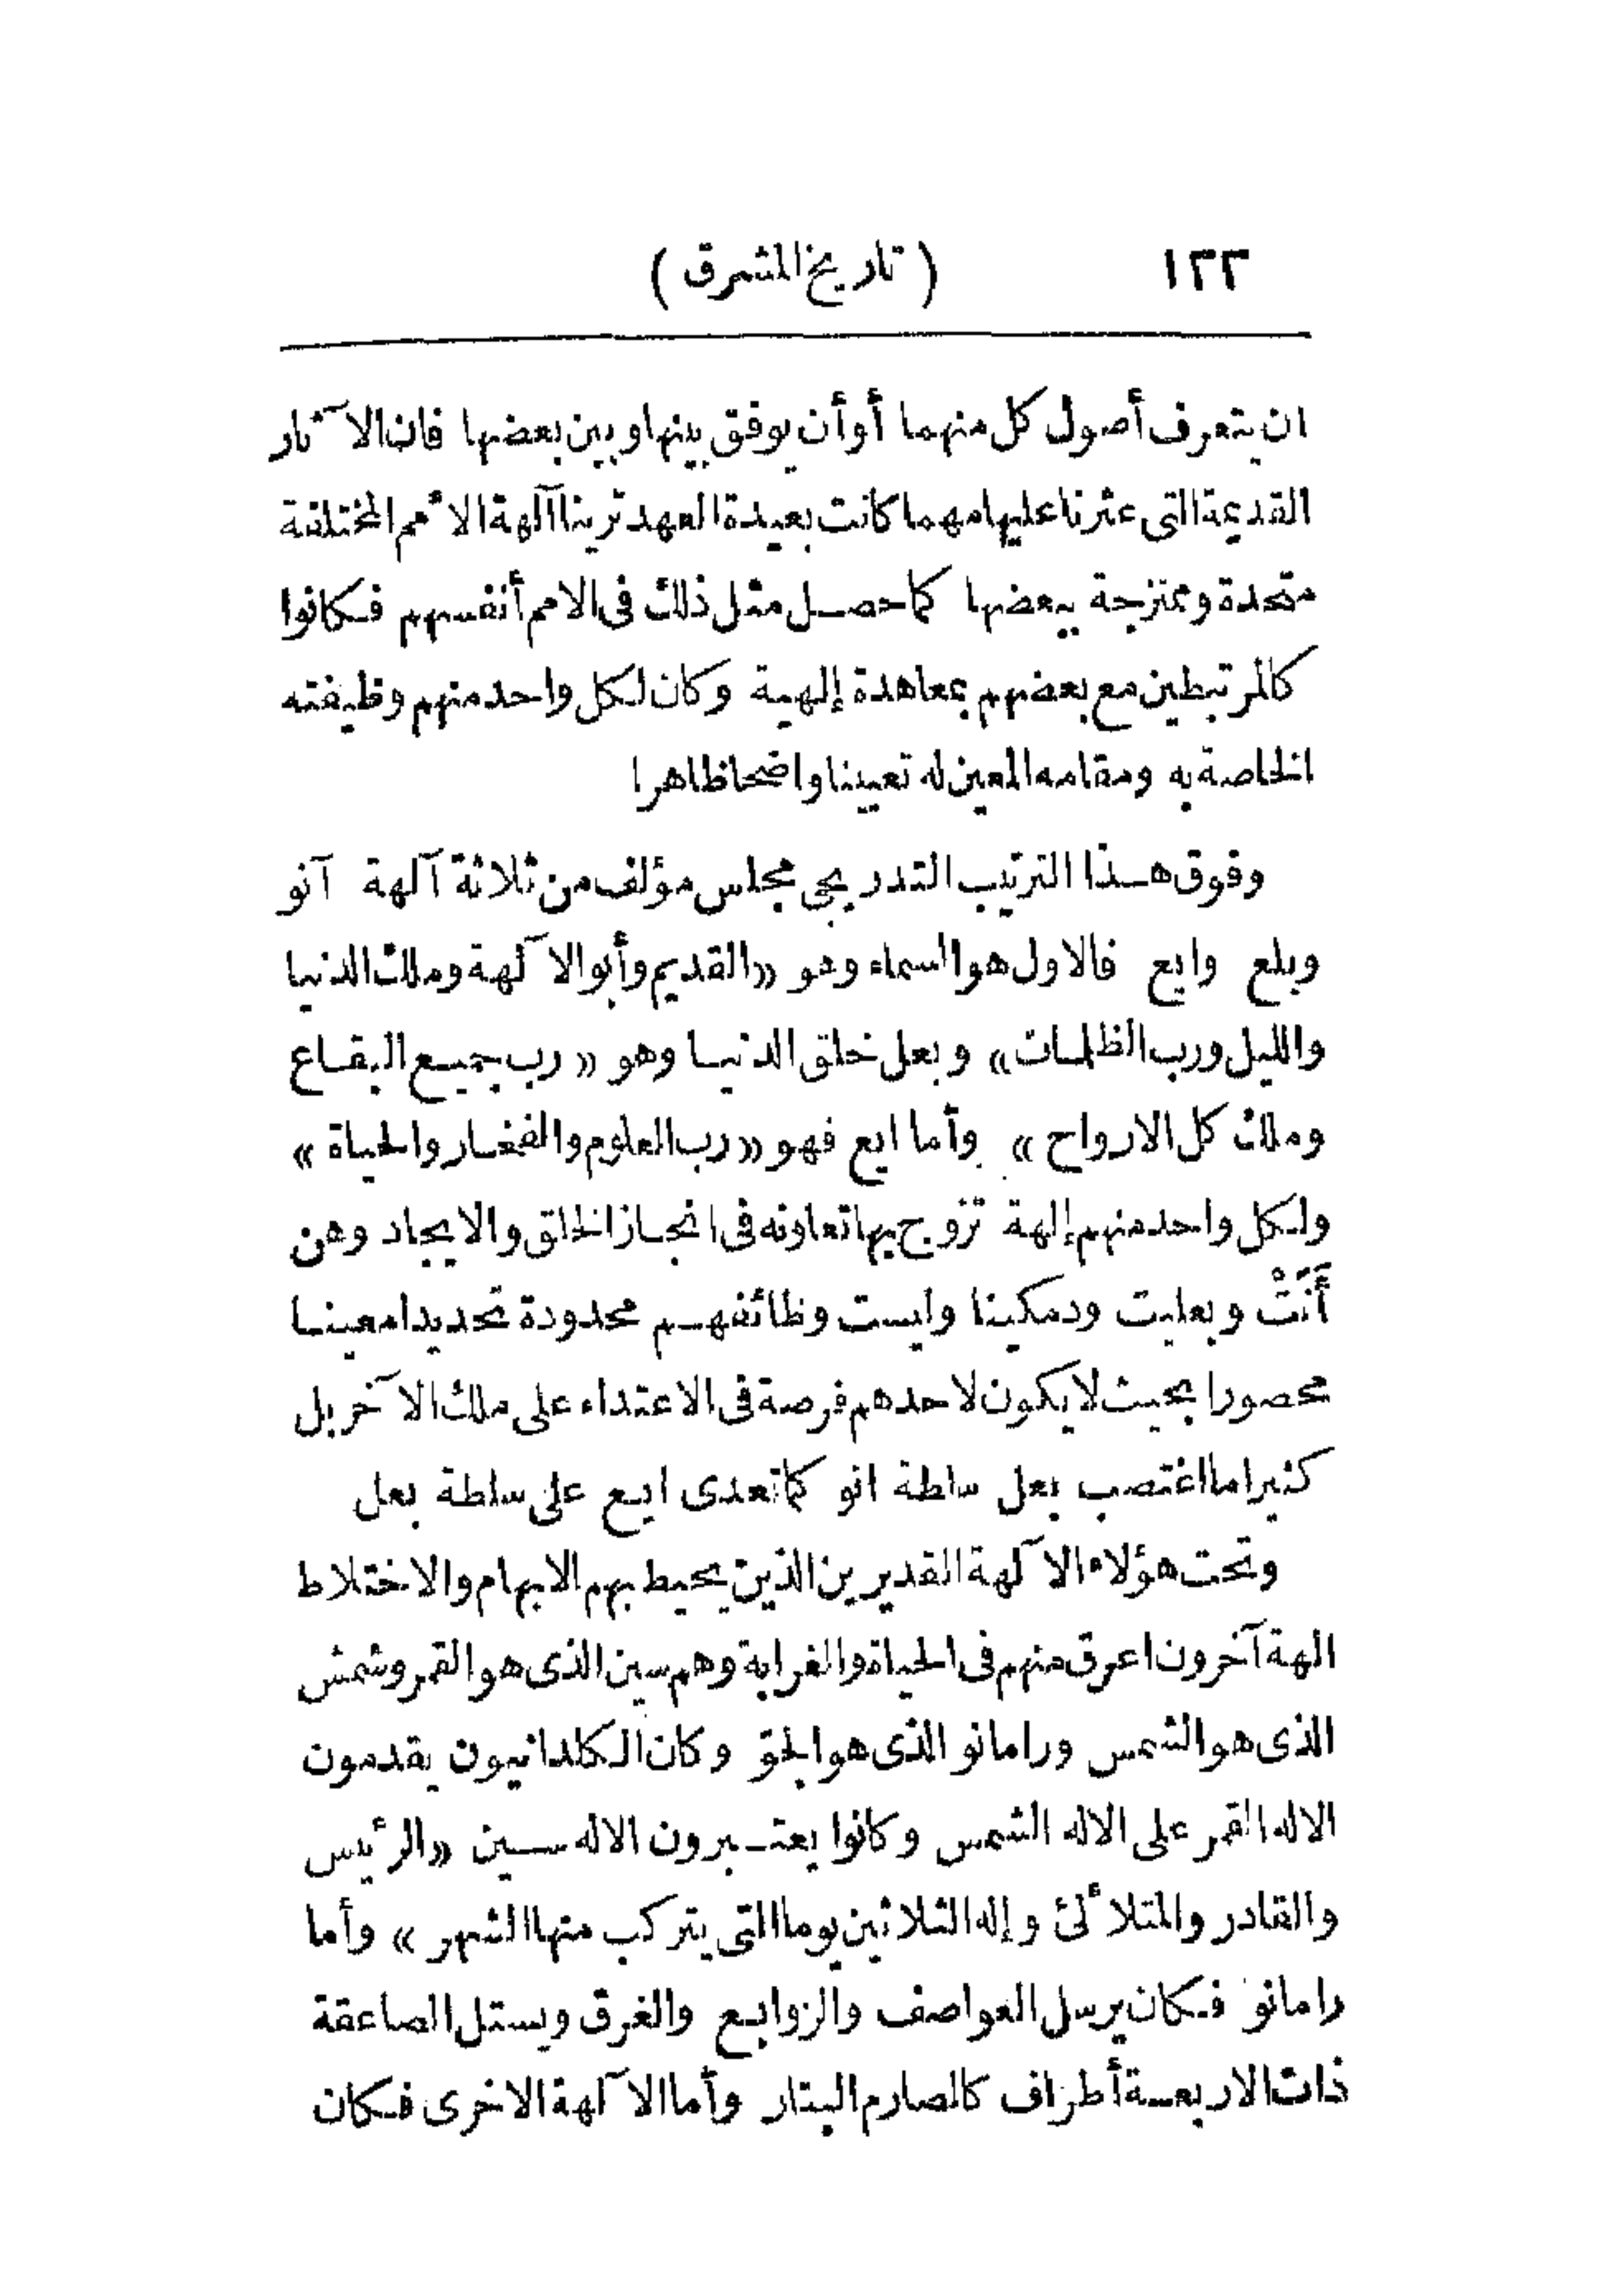 ١٢٢ ( تاريخ المشرق )
ان يتعرف أصول كل منهما أو أن يوفق بينها وبين بعضها فان الآثار
القديمة التى عثرنا عليها مهما كانت بعيدة العهد ترينا آلهة الأمم المختلفة
متحدة وممتزجة ببعضها كما حصل مثل ذلك فى الامم أنفسهم فكانوا
كالمرتبطين مع بعضهم بمعاهدة إلهية وكان لكل واحد منهم وظيفته
الخاصة به ومقامه المعين له تعيينا واضحا ظاهرا
وفوق هذا الترتيب التدريجى مجلس مؤلف من ثلاثة آلهة آنو
وبلع وايع فالاول هو السماء وهو «القديم وأبو الآلهة وملك الدنيا
والليل ورب الظلمات» وبعل خلق الدنيا وهو « رب جميع البقاع
وملك كل الارواح » وأما ايع فهو « رب العلوم والفخار والحياة »
ولكل واحد منهم إلهة تزوج بها تعاونه فى انجاز الخلق والايجاد وهن
أَنَتْ وبعليت ودمكينا وليست وظائفهم محدودة تحديدا معينا
محصورا بحيث لا يكون لاحدهم فرصة فى الاعتداء على ملك الآخر بل
كثيرا ما اغتصب بعل سلطة انو كما تعدى ايع على سلطة بعل
وتحت هؤلاء الآلهة القديرين الذين يحيط بهم الابهام والاختلاط
الهة آخرون اعرق منهم فى الحياة والغرابة وهم سين الذى هو القمر وشمش
الذى هو الشمس ورامانو الذى هو الجوّ وكان الكلدانيون يقدمون
الاله القمر على الاله الشمس وكانوا يعتبرون الاله سين «الرئيس
والقادر والمتلألئ وإله الثلاثين يوما التى يتركب منها الشهر » وأما
رامانو فكان يرسل العواصف والزوابع والغرق ويستل الصاعقة
ذات الاربعة أطراف كالصارم البتار وأما الآلهة الاخرى فكان